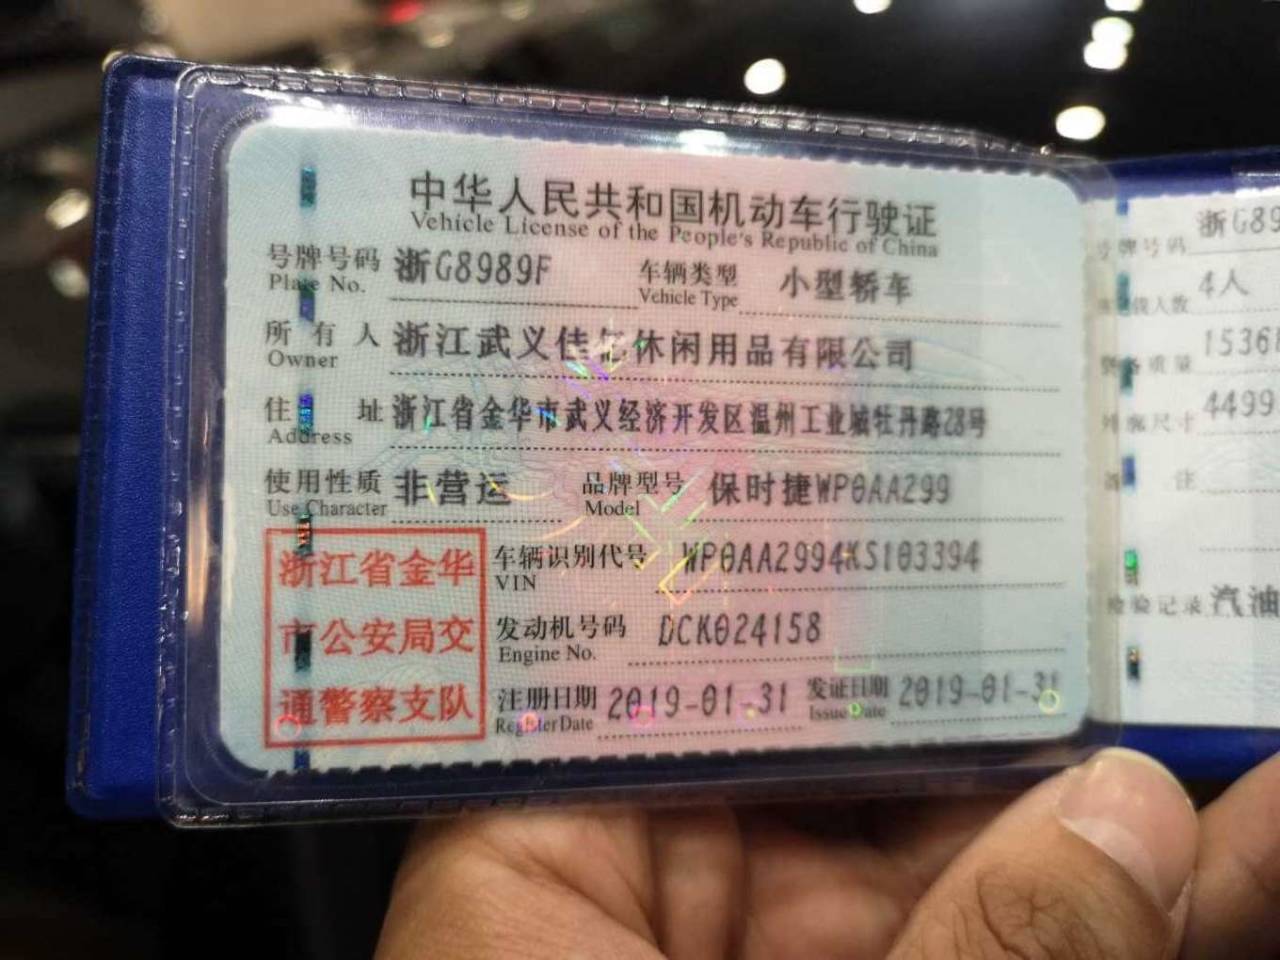 中华人民共和国机动车行驶证
Vehicle License of the People's Republic of China
号牌号码 浙G8989F 车辆类型 小型轿车
Plate No. Vehicle Type
所有人 浙江武义佳亿休闲用品有限公司
Owner
住址 浙江省金华市武义经济开发区温州工业城牡丹路28号
Address
使用性质 非营运 品牌型号 保时捷WP0AA299
Use Character Model
浙江省金华
市公安局交
通警察支队
车辆识别代号 WP0AA2994KS103394
VIN
发动机号码 DCK024158
Engine No.
注册日期 2019-01-31 发证日期 2019-01-31
Register Date Issue Date
号牌号码 浙G89
载人数 4人
备质量 1536
外廓尺寸 4499
注
检验记录 汽油